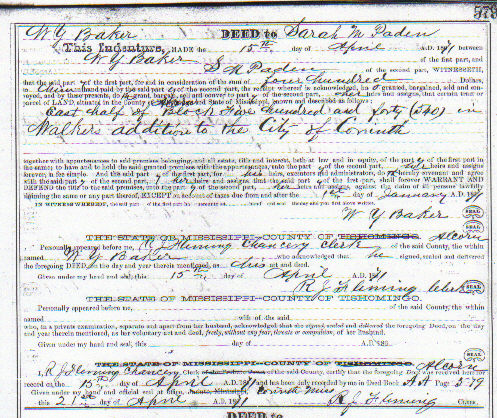 573
W Y Baker DEED to Sarah M Paden
This Indenture, MADE the 15th day of April A.D. 1891 between
W Y Baker of the first part, and
S M Paden of the second part, WITNESSETH,
that the said part y of the first part, for and in consideration of the sum of Four hundred Dollars,
East half of Block Five hundred and forty (540) in
Walkers addition to the City of Corinth
together with appurtenances to said premises belonging, and all estate, title and interest, both at law and in equity, of the part y of the first part in
the same; to have and to hold the said granted premises with the appurtenances, unto the part y of the second part, her heirs and assigns
forever, in fee simple. And the said part y of the first part, for his heirs, executors and administrators, do hereby covenant and agree
with the said part y of the second part, her heirs and assigns, that the said part y of the first part, shall forever WARRANT AND
DEFEND the title to the said premises, unto the part y of the second part, her heirs and assigns, against the claim of all persons lawfully
claiming the same or any part thereof, EXCEPT on account of taxes due from and after the 1st day of January A.D. 1891
IN WITNESS WHEREOF,
W Y Baker SEAL
SEAL
THE STATE OF MISSISSIPPI—COUNTY OF TISHOMINGO. Alcorn
Personally appeared before me, R J Fleming Chancery Clerk of the said County, the within
named W Y Baker who acknowledged that he signed, sealed and delivered
the foregoing DEED on the day and year therein mentioned, as his act and deed.
Given under my hand and seal, this 15th day of April A.D. 1891
R J Fleming Clerk SEAL
THE STATE OF MISSISSIPPI—COUNTY OF TISHOMINGO.
Personally appeared before me, of the said County, the within
named with of the said
who, in a private examination, separate and apart from her husband, acknowledged that she signed, sealed and delivered the foregoing Deed, on the day
and year therein mentioned, as her voluntary act and deed, freely, without any fear, threats or compulsion, of her husband.
Given under my hand and seal, this day of A.D. 189
SEAL
THE STATE OF MISSISSIPPI—COUNTY OF TISHOMINGO. Alcorn
I, R J Fleming Chancery Clerk of the said County, certify that the foregoing Deed was received for
record on the 15th day of April A.D. 1891 and has been only recorded by me in Deed Book AA Page 579
Given under my hand and official seal at office, Corinth Miss
this 21st day of April 1891 R J Fleming Clerk
DEED to